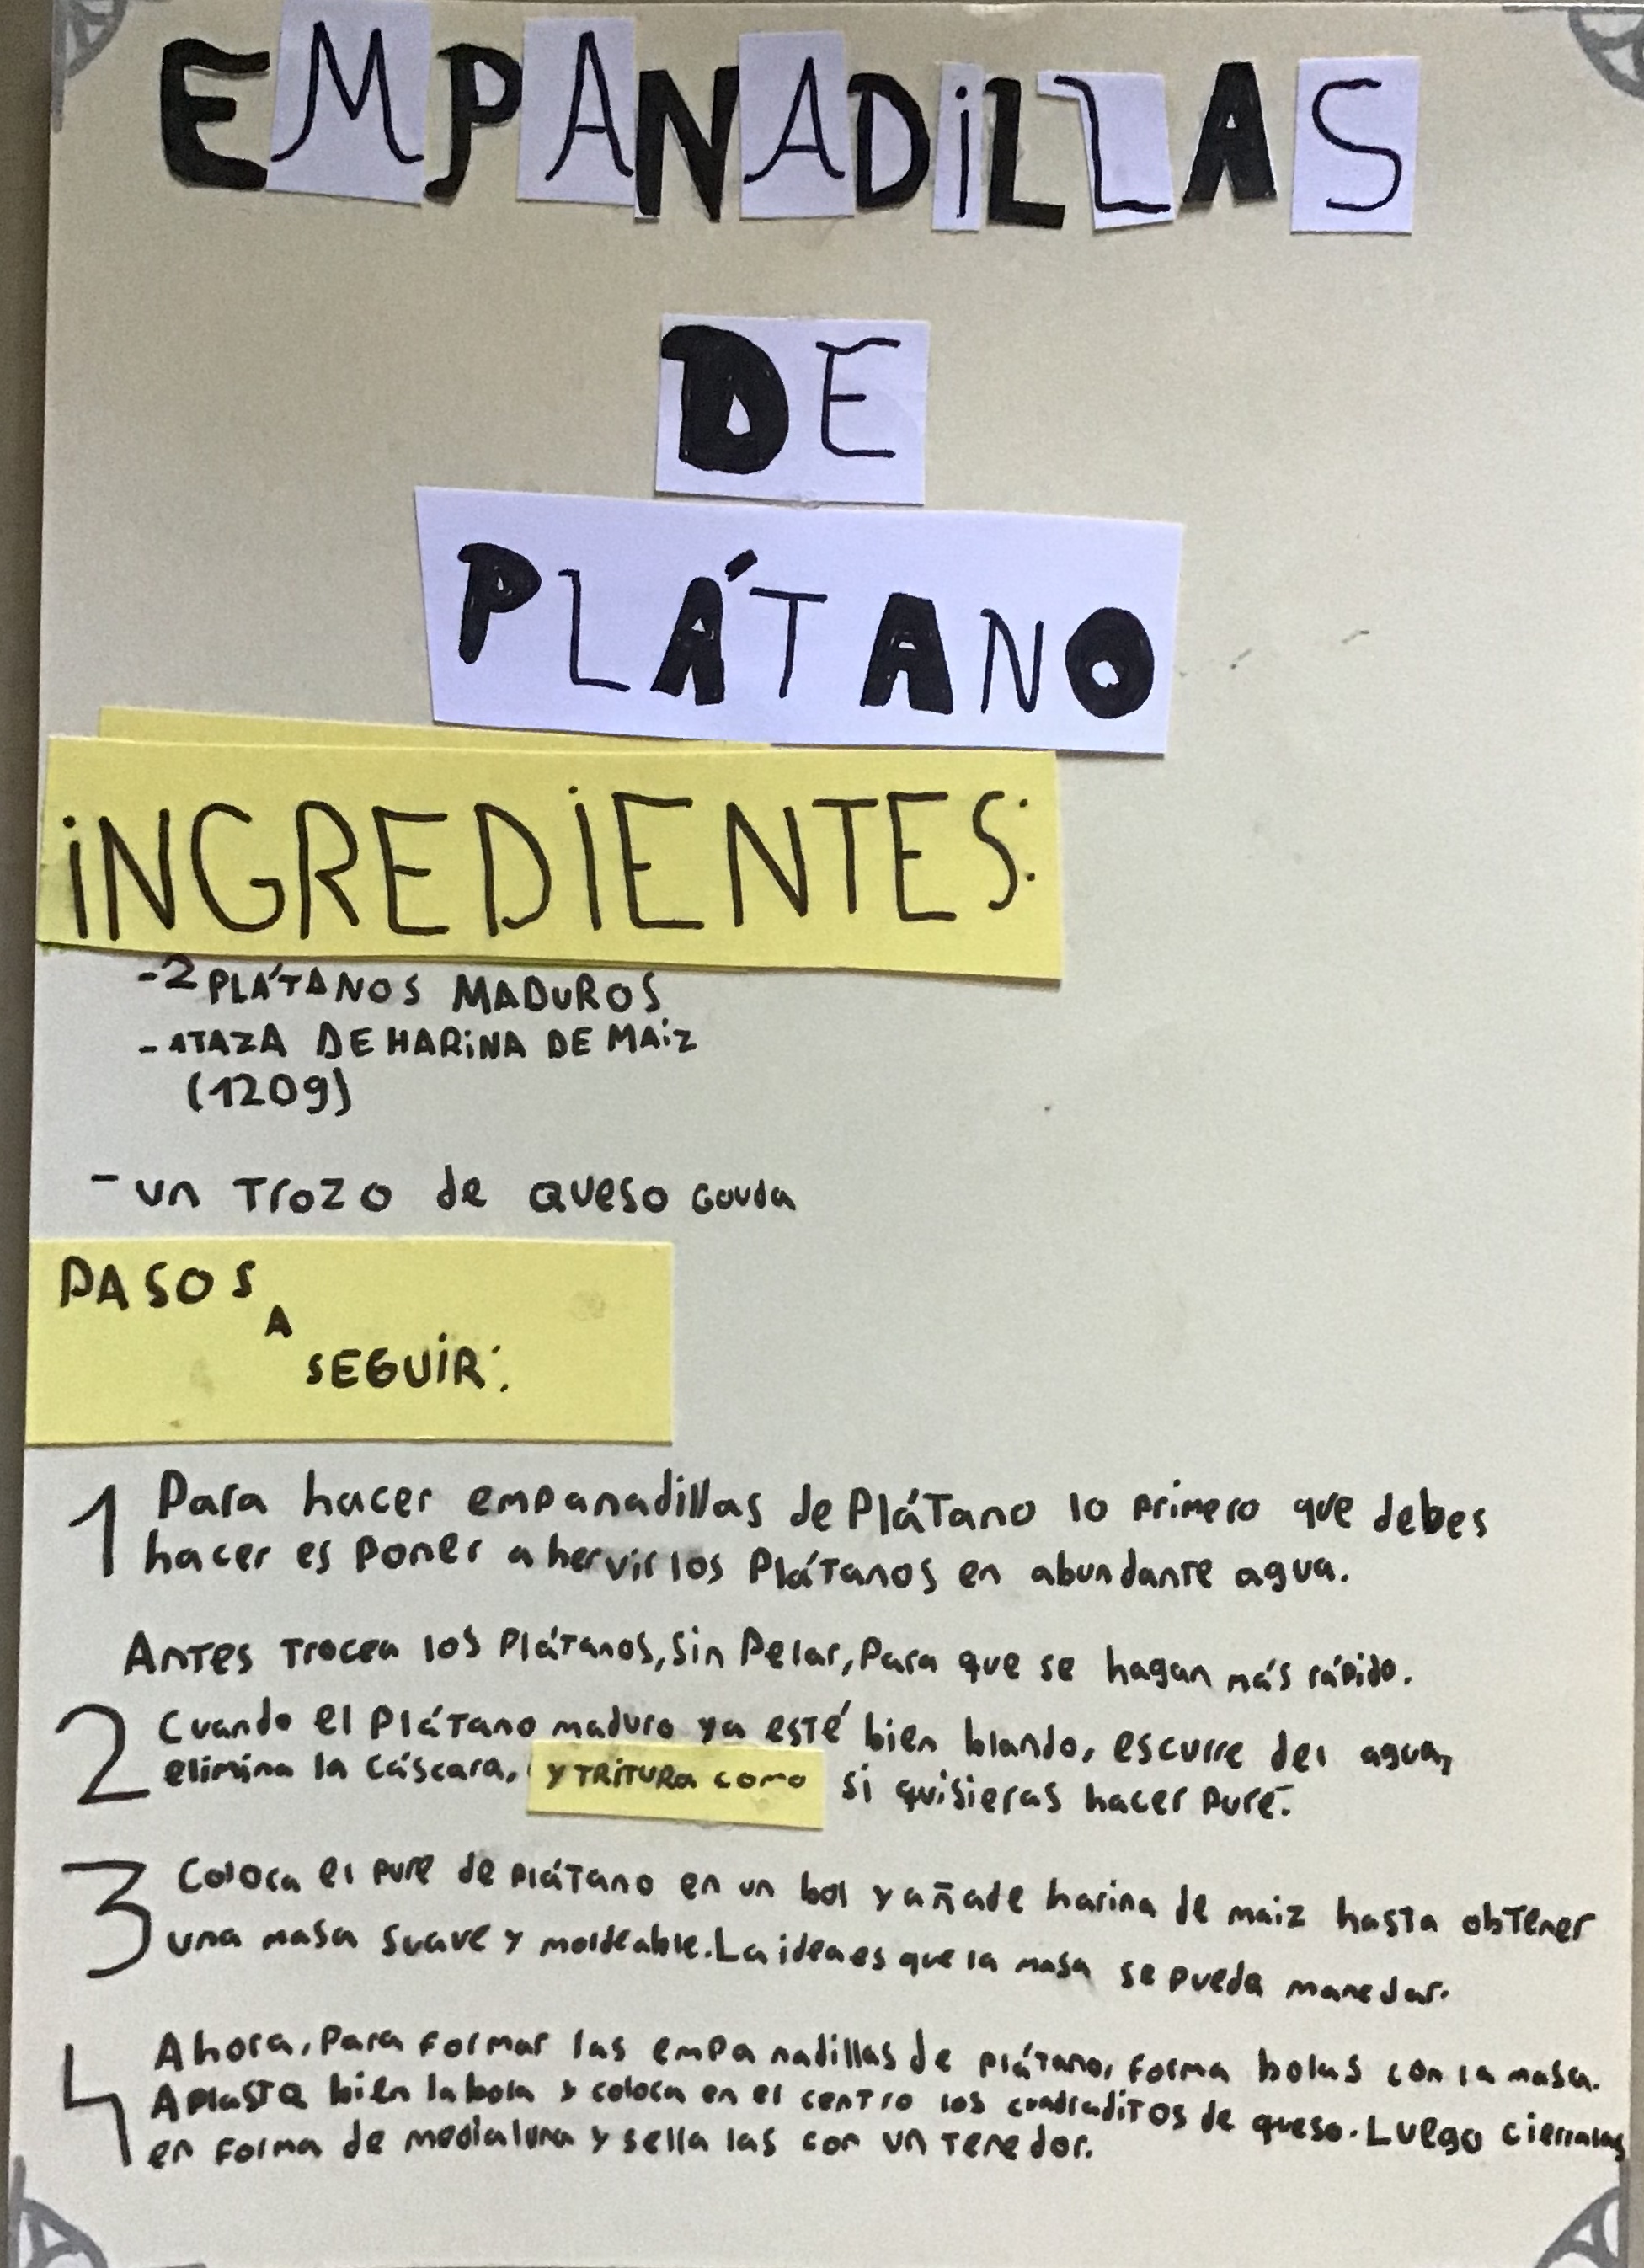 EMPANADiLLAS
DE
PLÁTANO
iNGREDiENTES:
-2 PLÁTANOS MADUROS
-1TAZA DE HARiNA DE MAiZ
(120g)
- un Trozo de queso Gouda
PASOS
A
SEGUiR:
1 Para hacer empanadillas de Plátano lo primero que debes
hacer es poner a hervir los Plátanos en abundante agua.
Antes trocea los Plátanos, sin Pelar, Para que se hagan más rápido.
2 Cuando el Plátano maduro ya esté bien blando, escurre del agua,
elimina la cáscara, y TRiTURa como si quisieras hacer puré.
3 Coloca el pure de plátano en un bol y añade harina de maiz hasta obtener
una masa suave y moldeable. La idea es que la masa se pueda manejar.
4 Ahora, Para formar las empanadillas de plátano, forma bolas con la masa.
Aplasta bien la bola y coloca en el centro los cuadraditos de queso. Luego cierralas
en forma de media luna y sella las con un tenedor.